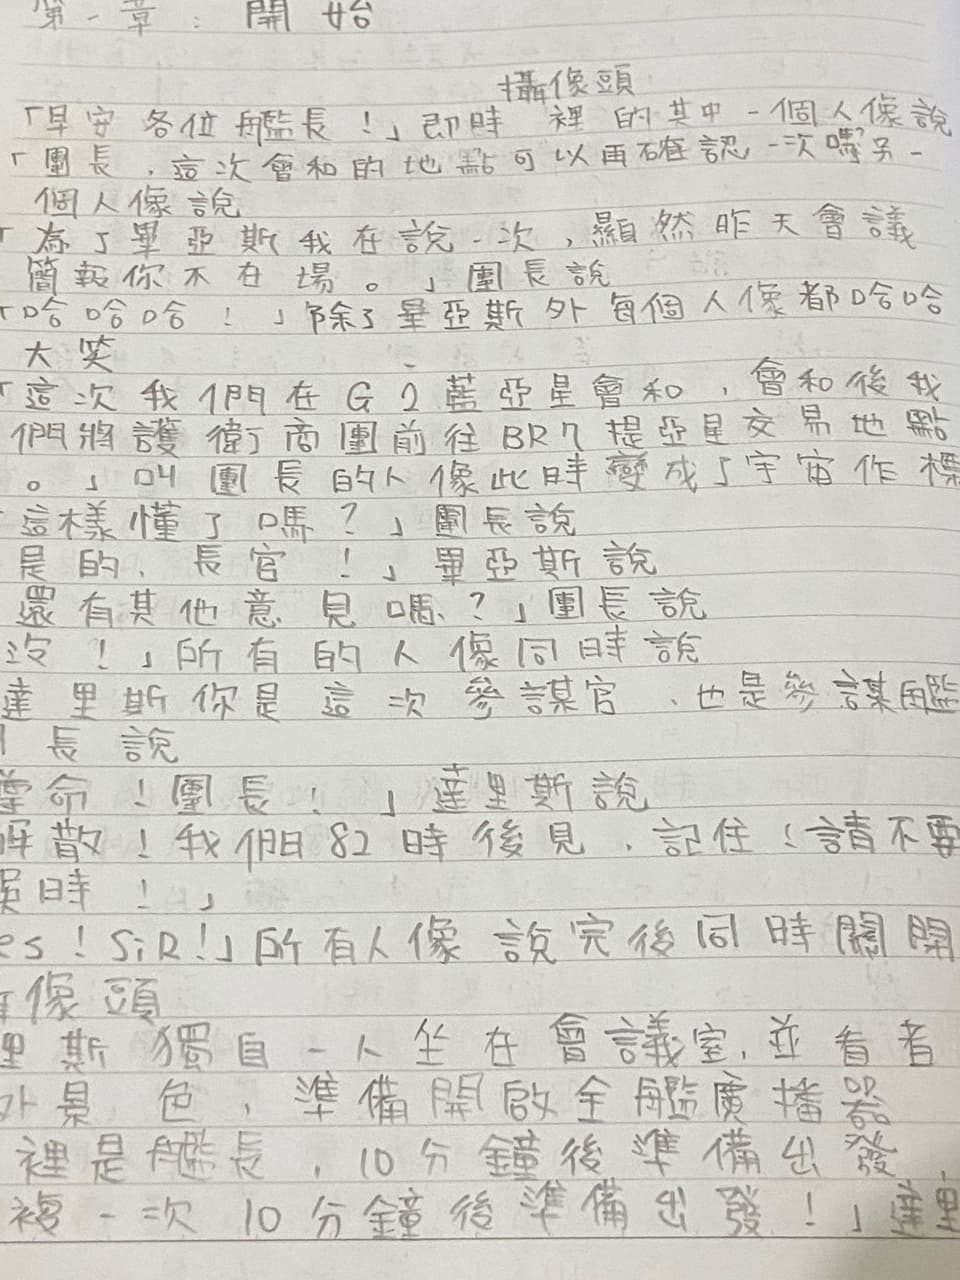 第一章：開始
攝像頭
「早安各位艦長！」即時 裡的其中一個人像說
「團長，這次會和的地點可以再確認一次嗎另一
個人像說
「為了畢亞斯我在說一次，顯然昨天會議
簡報你不在場。」團長說
「哈哈哈！」除了畢亞斯外每個人像都哈哈
大笑
「這次我們在G2藍亞星會和，會和後我
們將護衛商團前往BR7提亞星交易地點
。」叫團長的人像此時變成了宇宙作標
這樣懂了嗎？」團長說
是的、長官！」畢亞斯說
還有其他意見嗎？」團長說
沒！」所有的人像同時說
達里斯你是這次參謀官、也是參謀艦
長說
遵命！團長！」達里斯說
解散！我們82時後見，記住！請不要
誤時！」
es！SiR！」所有人像說完後同時關開
像頭
里斯獨自一人坐在會議室，並看者
外景色，準備開啟全艦廣播器
裡是艦長，10分鐘後準備出發，
複一次10分鐘後準備出發！」達里